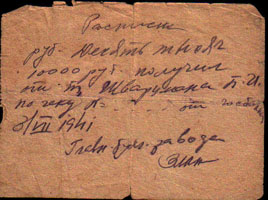 Расписка
руб. Десять тысяч
10000 руб. получил
от т. Шварцмана П. И.
по чеку № от госбанка
3/VII 1941
Глав. бух. завода